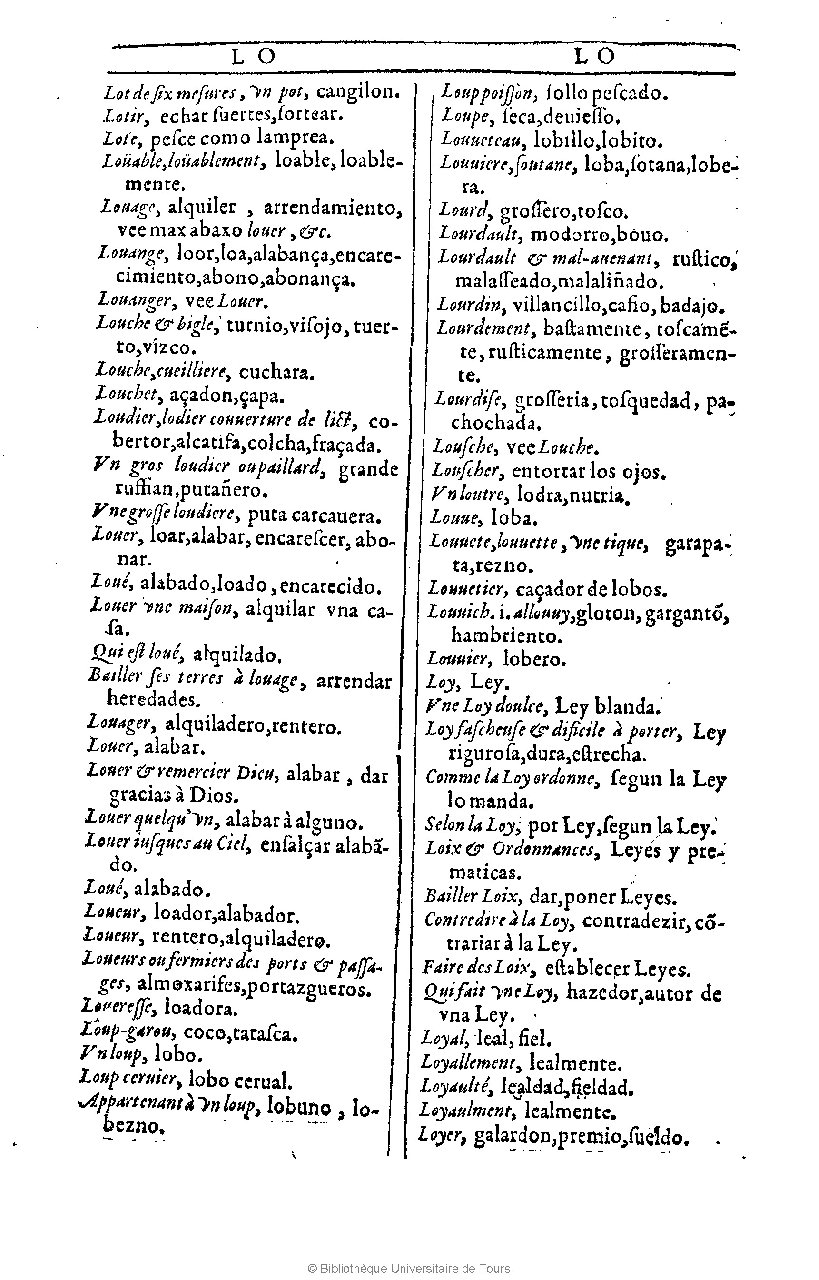 LO
LO
Lot de ſix meſures, vn pot, cangilon.
Lotir, echar ſuertes,ſortear.
Lote, peſce como lamprea.
Loüable,loüablement, loable,loable-
mente.
Louage, alquiler , arrendamiento,
vee max abaxo louer , &c.
Louange, loor,loa,alabança,encare-
cimiento,abono,abonança.
Louanger, vee Louer.
Louche & bigle, turnio,viſojo, tuer-
to,vizco.
Louche,cueilliere, cuchara.
Louchet, açadon,çapa.
Loudier,lodier couuerture de lict, co-
bertor,alcatifa,colcha,fraçada.
Vn gros loudier ou paillard, grande
ruffian,putañero.
Vne groſſe loudiere, puta carcauera.
Louer, loar,alabar, encareſcer, abo-
nar.
Loué, alabado,loado , encarecido.
Louer vne maiſon, alquilar vna ca-
ſa.
Qui eſt loué, alquilado.
Bailler ſes terres à louage, arrendar
heredades.
Louager, alquiladero,rentero.
Louer, alabar.
Louer & remercier Dieu, alabar , dar
gracias à Dios.
Louer quelqu'vn, alabar à alguno.
Louer iuſques au Ciel, enſalçar alabã-
do.
Loué, alabado.
Loueur, loador,alabador.
Loueur, rentero,alquiladero.
Loueurs ou fermiers des ports & paſſa-
ges, almoxarifes,portazgueros.
Louereſſe, loadora.
Loup-garou, coco,taraſca.
Vn loup, lobo.
Loup ceruier, lobo cerual.
Appartenant à vn loup, lobuno , lo-
bezno.
Louppoiſſon, ſollo peſcado.
Loupe, ſeca,deuieſſo.
Louueteau, lobillo,lobito.
Louuiere,ſoutane, loba,ſotana,lobe-
ra.
Lourd, groſſero,toſco.
Lourdault, modorro,bouo.
Lourdault & mal-auenant, ruſtico,
malaſſeado,malaliñado.
Lourdin, villancillo,cafio, badajo.
Lourdement, baſtamente, toſcamẽ-
te, ruſticamente, groſſeramen-
te.
Lourdiſe, groſſeria, toſquedad, pa-
chochada.
Louſche, vee Louche.
Louſcher, entortar los ojos.
Vn loutre, lodra,nutria.
Louue, loba.
Louuete,louuette , vne tique, garapa-
ta,rezno.
Louuetier, caçador de lobos.
Louuich. i. allouuy,gloton, gargantõ,
hambriento.
Louuier, lobero.
Loy, Ley.
Vne Loy doulce, Ley blanda.
Loy faſcheuſe & dificile à porter, Ley
riguroſa,dura,eſtrecha.
Comme la Loy ordonne, ſegun la Ley
lo manda.
Selon la Loy, por Ley,ſegun la Ley.
Loix & Ordonnances, Leyes y pre-
maticas.
Bailler Loix, dar,poner Leyes.
Contredire à la Loy, contradezir, cõ-
trariar à la Ley.
Faire des Loix, eſtablecer Leyes.
Qui fait vne Loy, hazedor,autor de
vna Ley.
Loyal, leal, fiel.
Loyallement, lealmente.
Loyaulté, lealdad,fieldad.
Loyaulment, lealmente.
Loyer, galardon,premio,ſueldo.
© Bibliothèque Universitaire de Tours